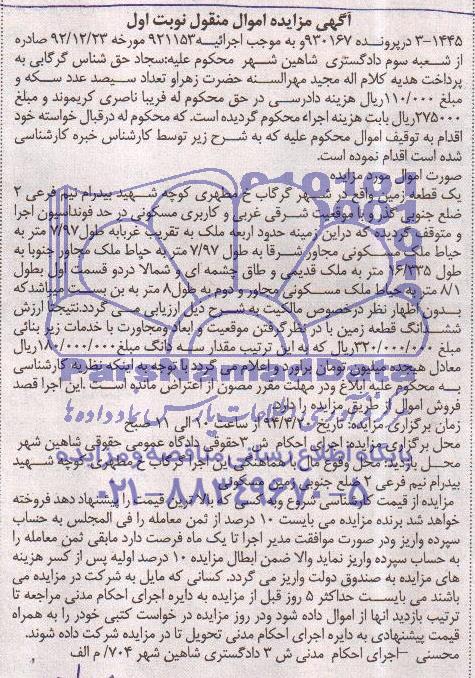 آگهی مزایده اموال منقول نوبت اول
۳-۱۴۴۵ درپرونده ۹۳۰۱۶۷و به موجب اجرائیه۹۲۱۱۵۳ مورخه ۹۲/۱۲/۲۳ صادره
از شعبه سوم دادگستری شاهین شهر محکوم علیه:سجاد حق شناس گرگابی به
پرداخت هدیه کلام اله مجید مهرالسنه حضرت زهراو تعداد سیصد عدد سکه و
مبلغ ۱۱۰/۰۰۰ریال هزینه دادرسی در حق محکوم له فریبا ناصری کریموند و مبلغ
۲۷۵۰۰۰ریال بابت هزینه اجراء محکوم گردیده است. که محکوم له درقبال خواسته خود
اقدام به توقیف اموال محکوم علیه که به شرح زیر توسط کارشناس خبره کارشناسی
شده است اقدام نموده است.
صورت اموال مورد مزایده
یک قطعه زمین واقع در شهر گرگاب خ مطهری کوچه شهید بیدرام نیم فرعی ۲
ضلع جنوبی گذر و با موقعیت شرقی غربی و کاربری مسکونی در حد فونداسیون اجرا
و متوقف گردیده که دراین زمینه حدود اربعه ملک به تقریب غربابه طول ۷/۹۷ متر به
حیاط ملک مسکونی مجاور شرقا به طول ۷/۹۷ متر به حیاط ملک مجاور جنوبا به
طول ۱۶/۳۳۵ متر به ملک قدیمی و طاق چشمه ای و شمالا دردو قسمت اول بطول
۸/۱ متر به حیاط ملک مسکونی مجاور و دوم به طول۸ متر به بن بست میباشدکه
بدون اظهار نظر درخصوص مالکیت به شرح ذیل ارزیابی می گردد.نتیجتا ارزش
ششدانگ قطعه زمین با در نظرگرفتن موقعیت و ابعاد ومجاورت با خدمات زیر بنائی
مبلغ ۳۲۰/۰۰۰/۰۰۰ریال که به این ترتیب مقدار سه دانگ مبلغ۱۸۰/۰۰۰/۰۰۰ریال
معادل هیجده میلیون تومان براورد و اعلام می گردد با توجه به اینکه نظریه کارشناسی
به محکوم علیه ابلاغ ودر مهلت مقرر مصون از اعتراض مانده است .این اجرا قصد
فروش اموال از طریق مزایده را دارد.
زمان برگزاری مزایده: تاریخ ۹۴/۴/۷ از ساعت ۱۰ الی ۱۱ صبح
محل برگزاری مزایده: اجرای احکام ش ۳حقوقی دادگاه عمومی حقوقی شاهین شهر
محل بازدید: محل وقوع مال با هماهنگی این اجرا گرگاب خ مطهری کوچه شهید
بیدرام نیم فرعی ۲ ضلع جنوبی زمین مسکونی
مزایده از قیمت کارشناسی شروع وبه کسانی که بالاترین قیمت را پیشنهاد دهد فروخته
خواهد شد برنده مزایده می بایست ۱۰ درصد از ثمن معامله را فی المجلس به حساب
سپرده واریز ودر صورت موافقت مدیر اجرا تا یک ماه فرصت دارد مابقی ثمن معامله را
به حساب سپرده واریز نماید والا ضمن ابطال مزایده ۱۰ درصد اولیه پس از کسر هزینه
های مزایده به صندوق دولت واریز می گردد. کسانی که مایل به شرکت در مزایده می
باشند می بایست حداکثر ۵ روز قبل از مزایده به دایره اجرای احکام مدنی مراجعه تا
ترتیب بازدید انها از اموال داده شود ودر روز مزایده در خواست کتبی خودر را به همراه
قیمت پیشنهادی به دایره اجرای احکام مدنی تحویل تا در مزایده شرکت داده شوند.
محسنی -اجرای احکام مدنی ش ۳ دادگستری شاهین شهر ۷۰۴/ م الف
ParsNamadData
پایگاه اطلاع رسانی مناقصه و مزایده
۰۲۱-۸۸۳۴۹۶۷۰-۵